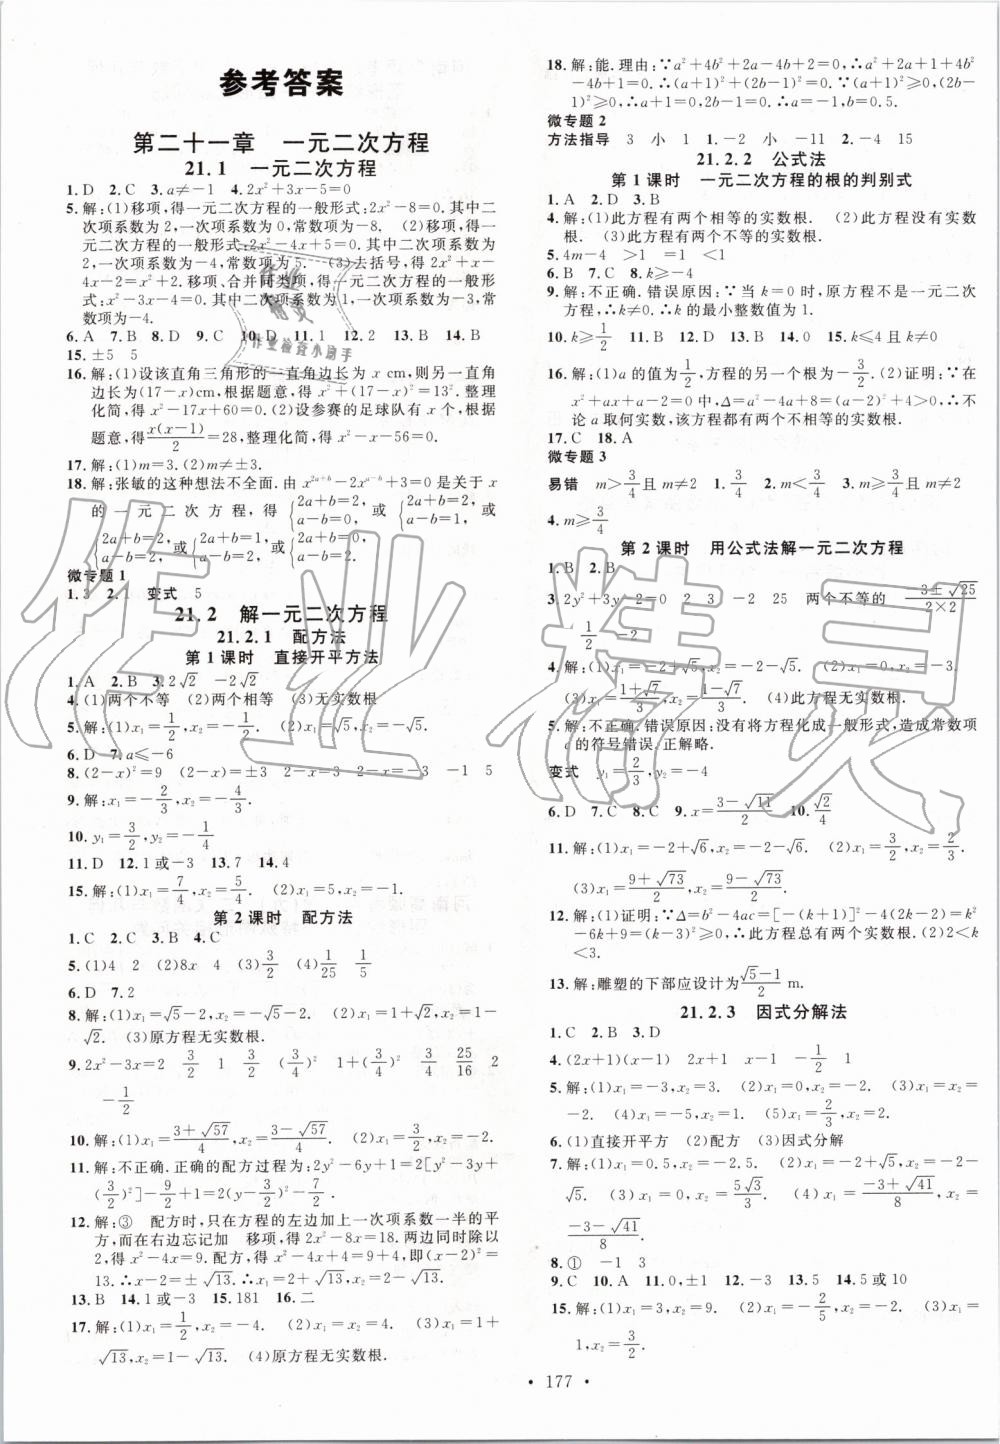 参考答案
第二十一章 一元二次方程
21.1 一元二次方程
1.D 2.C 3.a≠-1 4.2x²+3x-5=0
5.解:(1)移项,得一元二次方程的一般形式:2x²-8=0.其中二
次项系数为2,一次项系数为0,常数项为-8. (2)移项,得一
元二次方程的一般形式:2x²-4x+5=0.其中二次项系数为
2,一次项系数为-4,常数项为5. (3)去括号,得4x²-
4x=3x²-x+2.移项、合并同类项,得一元二次方程的一般形
式:x²-3x-2=0.其中二次项系数为1,一次项系数为-3,常
数项为-4.
6.A 7.B 8.D 9.C 10.D 11.1 12.2 13.B 14.B
15.±5 5
16.解:(1)设该直角三角形的一直角边长为x cm,则另一直角
边长为(17-x)cm,根据题意,得x²+(17-x)²=13².整理
化简,得x²-17x+60=0.(2)设参赛的足球队有x个,根据
题意,得x(x-1)/2=28,整理化简,得x²-x-56=0.
17.解:(1)m=3.(2)m≠±3.
18.解:张敏的这种想法不全面.由x^(2a+b)-2x^(a-b)+3=0是关于x
的一元二次方程,得{2a+b=2, a-b=2 或{2a+b=2, a-b=1 或
{2a+b=2, a-b=0 或{2a+b=1, a-b=2 或{2a+b=0, a-b=2.
微专题1
1.3 2.1 变式 5
21.2 解一元二次方程
21.2.1 配方法
第1课时 直接开平方法
1.A 2.B 3.2√2 -2√2
4.(1)两个不等 (2)两个相等 (3)无实数根
5.解:(1)x₁=1/2,x₂=-1/2. (2)x₁=√5,x₂=-√5.
6.D 7.a≤-6
8.(2-x)²=9 (2-x)=±3 2-x=3 2-x=-3 -1 5
9.解:x₁=-2/3,x₂=-4/3.
10.y₁=3/2,y₂=-1/4
11.D 12.1或-3 13.7 14.4
15.解:(1)x₁=7/4,x₂=5/4. (2)x₁=2,x₂=0.
第2课时 配方法
1.C 2.C 3.B 4.C
5.(1)4 2 (2)8x 4 (3)3/2 1/25 1/5
6.D 7.2
8.解:(1)x₁=√5-2,x₂=-√5-2. (2)x₁=1+√2,x₂=1-
√2. (3)原方程无实数根.
9.2x²-3x=2 3/2 1 3/2 (3/4)² 1+(3/4)² 3/4 25/16 2
-1/2
10.解:(1)x₁=(3+√57)/4,x₂=(3-√57)/4. (2)x₁=3/2,x₂=-2.
11.解:不正确.正确的配方过程为:2y²-6y+1=2[y²-3y+
(3/2)²]-9/2+1=2(y-3/2)²-7/2.
12.解:③ 配方时,只在方程的左边加上一次项系数一半的平
方,而在右边忘记加 移项,得2x²-8x=18.两边同时除以
2,得x²-4x=9.配方,得x²-4x+4=9+4,即(x-2)²=
13.∴x-2=±√13.∴x₁=2+√13,x₂=2-√13.
13.B 14.1或-3 15.181 16.二
17.解:(1)x₁=1/2,x₂=-4. (2)x₁=0,x₂=4. (3)x₁=1+
√13,x₂=1-√13. (4)原方程无实数根.
18.解:能.理由:∵a²+4b²+2a-4b+2=0,∴a²+2a+1+4b²
-4b+1=0.∴(a+1)²+(2b-1)²=0.∵(a+1)²≥0,(2b
-1)²≥0,∴a+1=0,2b-1=0.∴a=-1,b=0.5.
微专题2
方法指导 3 小 1 1.-2 小 -11 2.-4 15
21.2.2 公式法
第1课时 一元二次方程的根的判别式
1.A 2.D 3.B
4.解:(1)此方程有两个相等的实数根. (2)此方程没有实数
根. (3)此方程有两个不相等的实数根.
5.4m-4 >1 =1 <1
6.B 7.C 8.k≥-4
9.解:不正确.错误原因:∵当k=0时,原方程不是一元二次
方程,∴k≠0.∴k的最小整数值为1.
10.k≥1/2 11.B 12.D 13.B 14.A 15.k≤4且k≠0
16.解:(1)a的值为1/2,方程的另一根为-3/2.(2)证明:∵在
x²+ax+a-2=0中,Δ=a²-4a+8=(a-2)²+4>0,∴不
论a取何实数,该方程都有两个不相等的实数根.
17.C 18.A
微专题3
易错 m>3/4且m≠2 1.3/4 2.m<3/4 3.m≥3/4且m≠2
4.m≥3/4
第2课时 用公式法解一元二次方程
1.B 2.B
3.2y²+3y-2=0 2 3 -2 25 两个不等的 (-3±√25)/(2×2)
1/2 -2
4.解:(1)x₁=-√5,x₂=√5. (2)x₁=0,x₂=
(3)x₁=(1+√7)/3,x₂=(1-√7)/3. (4)此方程无实数根.
5.解:不正确.错误原因:没有将方程化成一般形式,造成常数项
c的符号错误.正解略.
变式 y₁=2/3,y₂=-4
6.D 7.C 8.C 9.x=(3-√11)/2 10.√2/4
11.解:(1)x₁=-2+√6,x₂=-2-√6. (2)x₁=3/2,x₂=2/3.
(3)x₁=(9+√73)/2,x₂=(9-√73)/2.
12.解:(1)证明:∵Δ=b²-4ac=[-(k+1)]²-4(2k-2)=k²
-6k+9=(k-3)²≥0,∴此方程总有两个实数根.(2)2<k
<3.
13.解:雕塑的下部应设计为(√5-1)/2 m.
21.2.3 因式分解法
1.C 2.B 3.D
4.(2x+1)(x-1) 2x+1 x-1 -1/2 1
5.解:(1)x₁=-3,x₂=3. (2)x₁=0,x₂=3. (3)x₁=x₂=
-2. (4)x₁=1,x₂=-3. (5)x₁=2/3,x₂=2.
6.(1)直接开平方 (2)配方 (3)因式分解
7.解:(1)x₁=0.5,x₂=-2.5. (2)x₁=-2+√5,x₂=-2-
√5. (3)x₁=0,x₂=5√3/3. (4)x₁=(-3+√41)/8,x₂=
(-3-√41)/8.
8.① -1 3
9.C 10.A 11.0,±1 12.-3 13.5 14.5或10
15.解:(1)x₁=3,x₂=9. (2)x₁=-2/5,x₂=2. (3)x₁=
1,x₂=3/2.
• 177 •
作业精灵
作业检查小助手